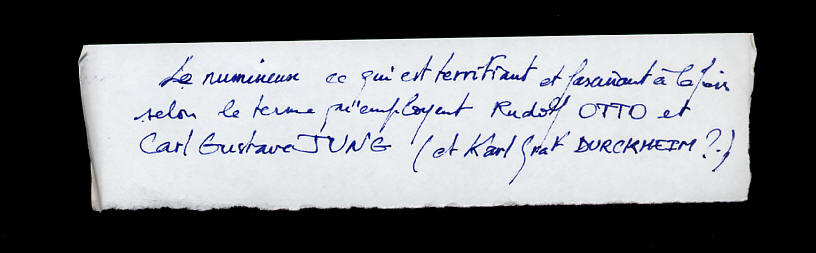 Le numineux ce qui est terrifiant et fascinant à la fois
selon le terme qu'employent Rudolf OTTO et
Carl Gustave JUNG (et Karl Graf DURCKHEIM ?.)